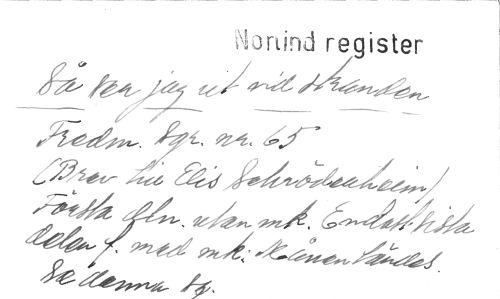 Nonind register
Så ser jag ut vid stranden
Fredm. sgr. nr. 65
(Brev till Elis Schröderheim)
Första deln. utan mk. Endast sista
delen f. med mk: Månen tändes.
Se denna sg.